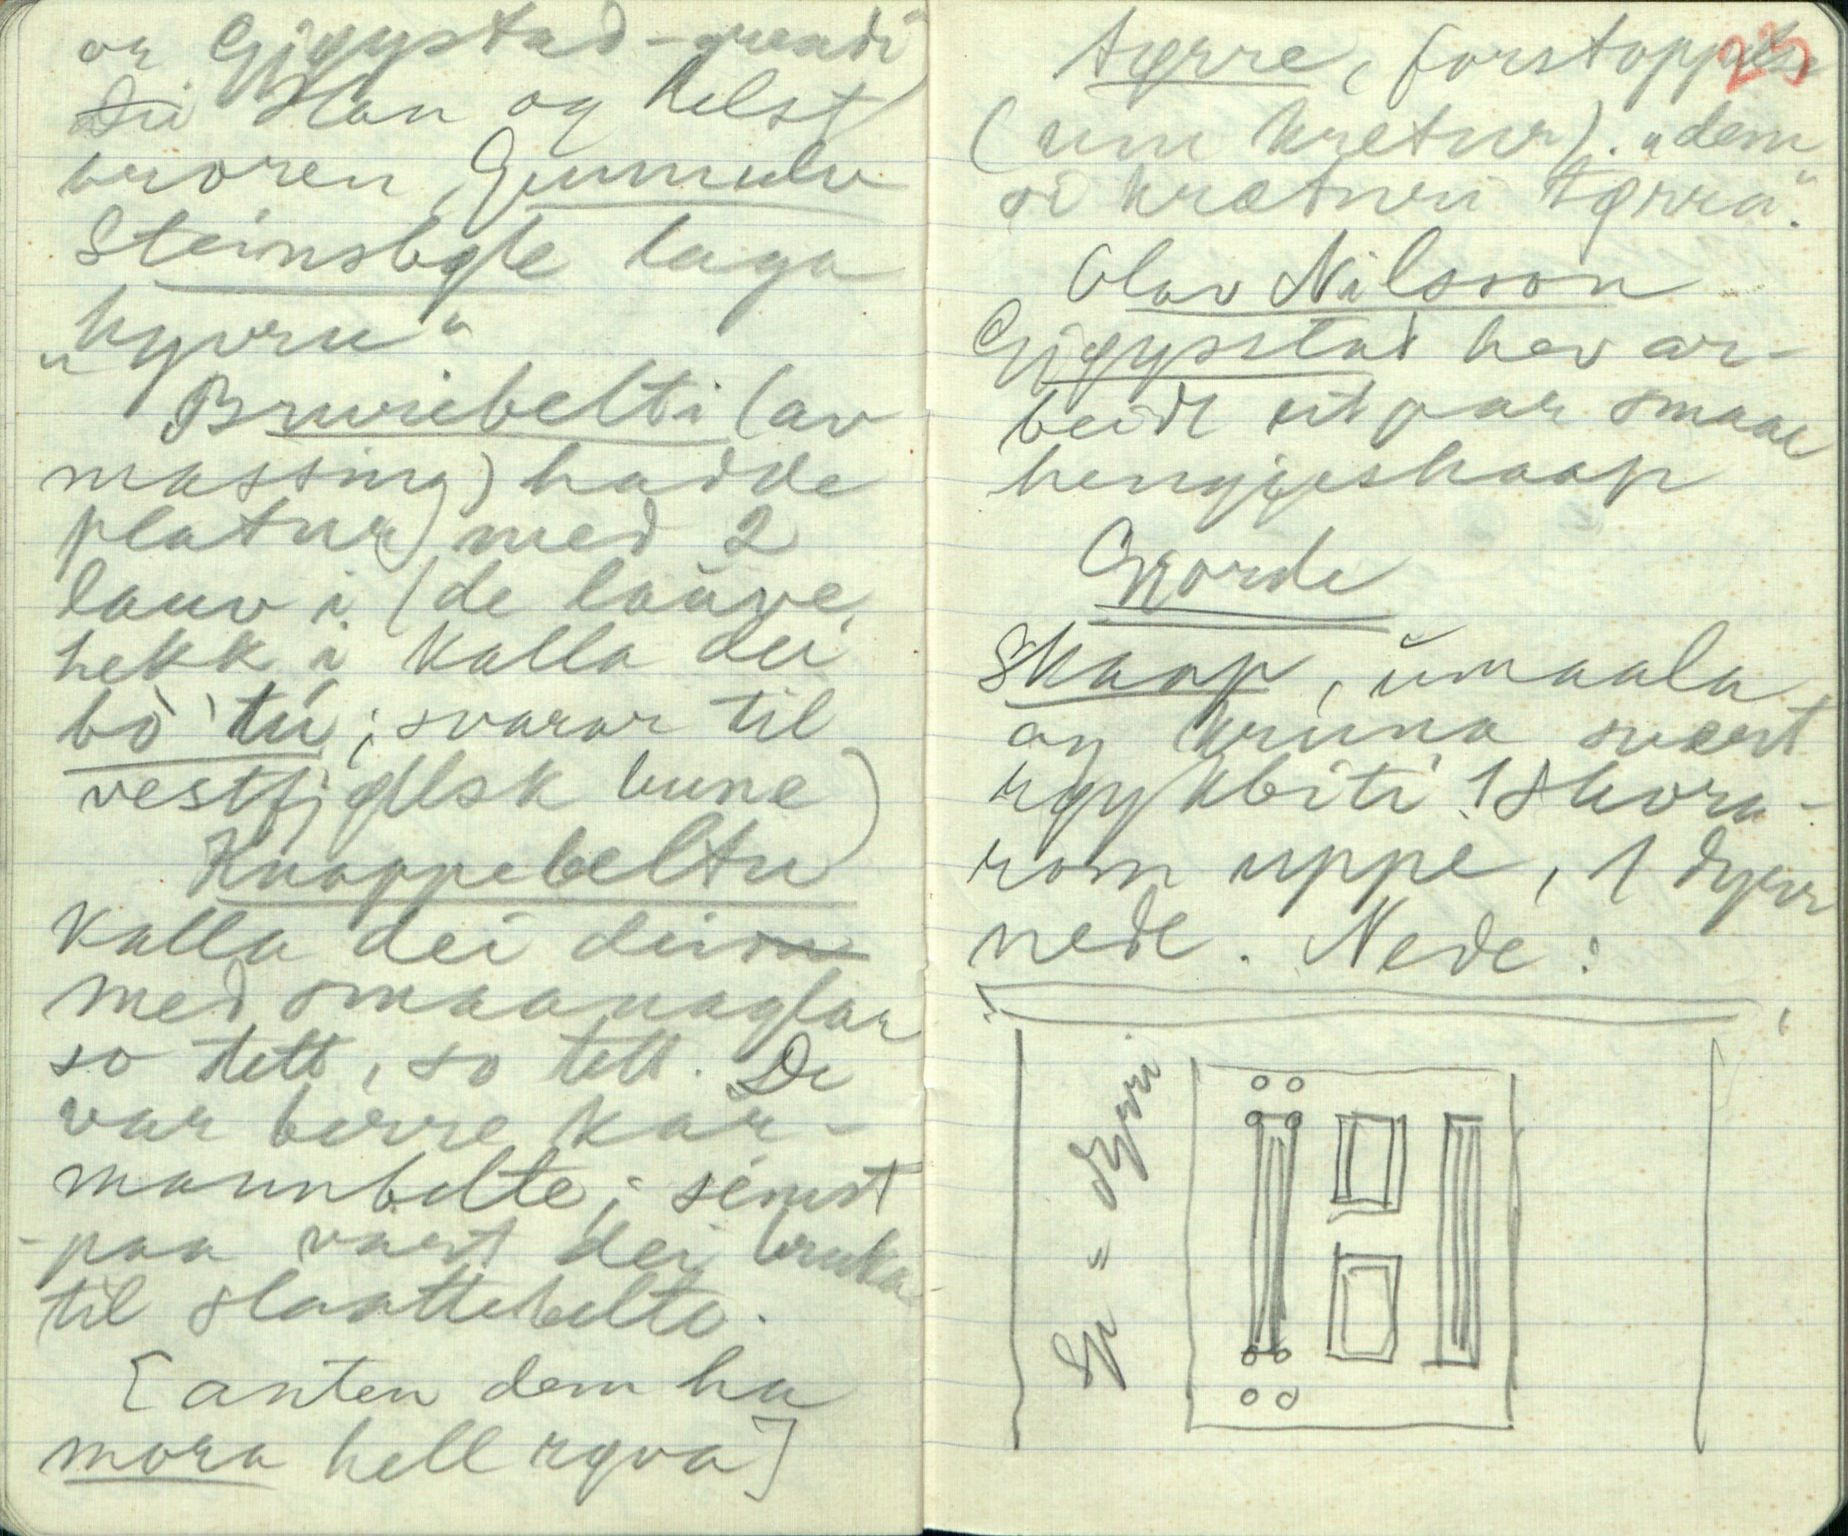 or Gjøystad-grendi
Han og helst
broren Gunnulv
Steinsbøle laga
"hyvru"
Bruriebelti (av
massing) hadde
platur med 2
lauv i (de lauve,
hekk i kalla dei
bo'tu; svarar til
vestfjøllsk bune)
Knappebeltu
kalla dei dei
med smaanaglar
so tett, so tett. "De
var berre kar-
mannbelte; seinst
paa vart dei bruka
til slaattebelte.
[anten dem ha
mora hell røva]
25
tørre, forstoppelse
(um kretur). "dem
si krøturi tørra".
Olav Nilsson
Gjøysstad hev ar-
beidt eit par smaae
hengjeskaap
Gjorde
Skaap, umaala
og bruna svært
røykbiti 1 skora-
rom uppe, 1 dyrr
nede. Nede:
Sp = dyrri